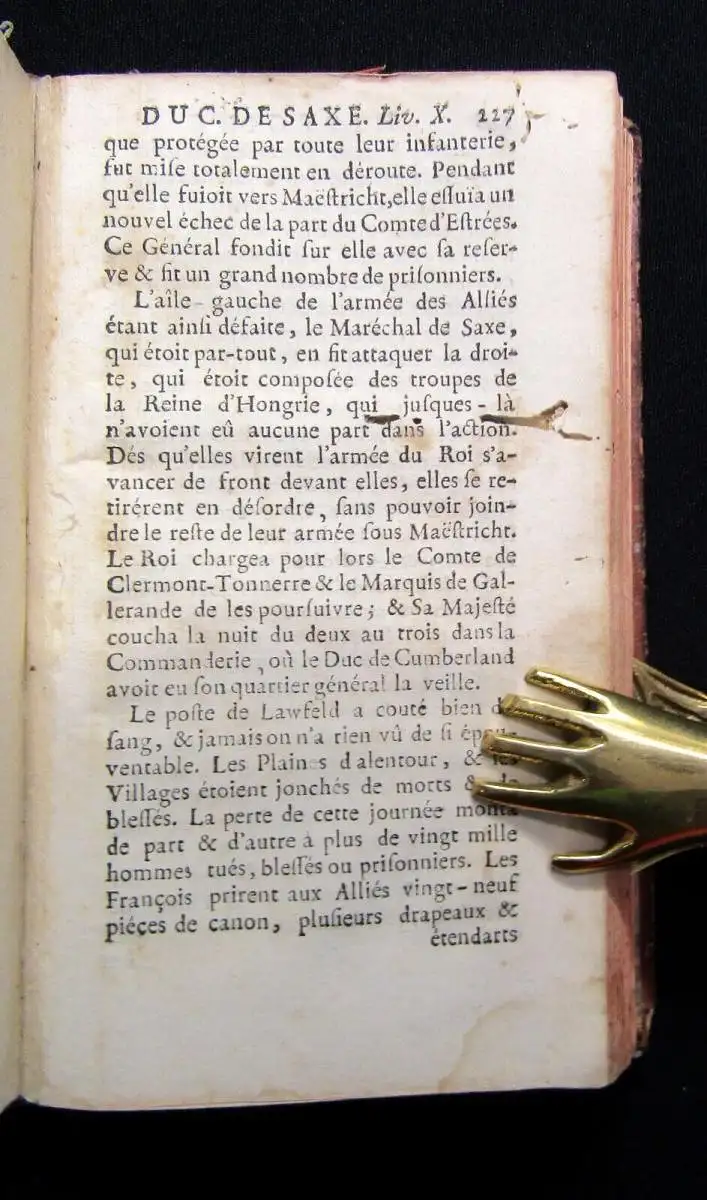 DUC. DE SAXE. Liv. X. 227
que protégée par toute leur infanterie,
fut miſe totalement en déroute. Pendant
qu'elle fuioit vers Maëſtricht, elle eſſuïa un
nouvel échec de la part du Comte d'Eſtrées.
Ce Général fondit ſur elle avec ſa reſer-
ve & fit un grand nombre de priſonniers.
L'aîle gauche de l'armée des Alliés
étant ainſi défaite, le Maréchal de Saxe,
qui étoit par-tout, en fit attaquer la droi-
te, qui étoit compoſée des troupes de
la Reine d'Hongrie, qui juſques-là
n'avoient eû aucune part dans l'action.
Dés qu'elles virent l'armée du Roi s'a-
vancer de front devant elles, elles ſe re-
tirérent en déſordre, ſans pouvoir join-
dre le reſte de leur armée ſous Maëſtricht.
Le Roi chargea pour lors le Comte de
Clermont-Tonnerre & le Marquis de Gal-
lerande de les pourſuivre; & Sa Majeſté
coucha la nuit du deux au trois dans la
Commanderie, où le Duc de Cumberland
avoit eu ſon quartier général la veille.
Le poſte de Lawfeld a couté bien
ſang, & jamais on n'a rien vû de ſi épou-
ventable. Les Plaines d'alentour, & les
Villages étoient jonchés de morts &
bleſſés. La perte de cette journée monta
de part & d'autre à plus de vingt mille
hommes tués, bleſſés ou priſonniers. Les
François prirent aux Alliés vingt-neuf
piéces de canon, pluſieurs drapeaux &
étendarts